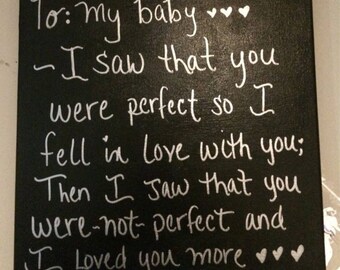 To: my baby ♥♥♥
~I saw that you
were perfect so I
fell in love with you;
Then I saw that you
were-not-perfect and
I Loved you more ♥♥♥